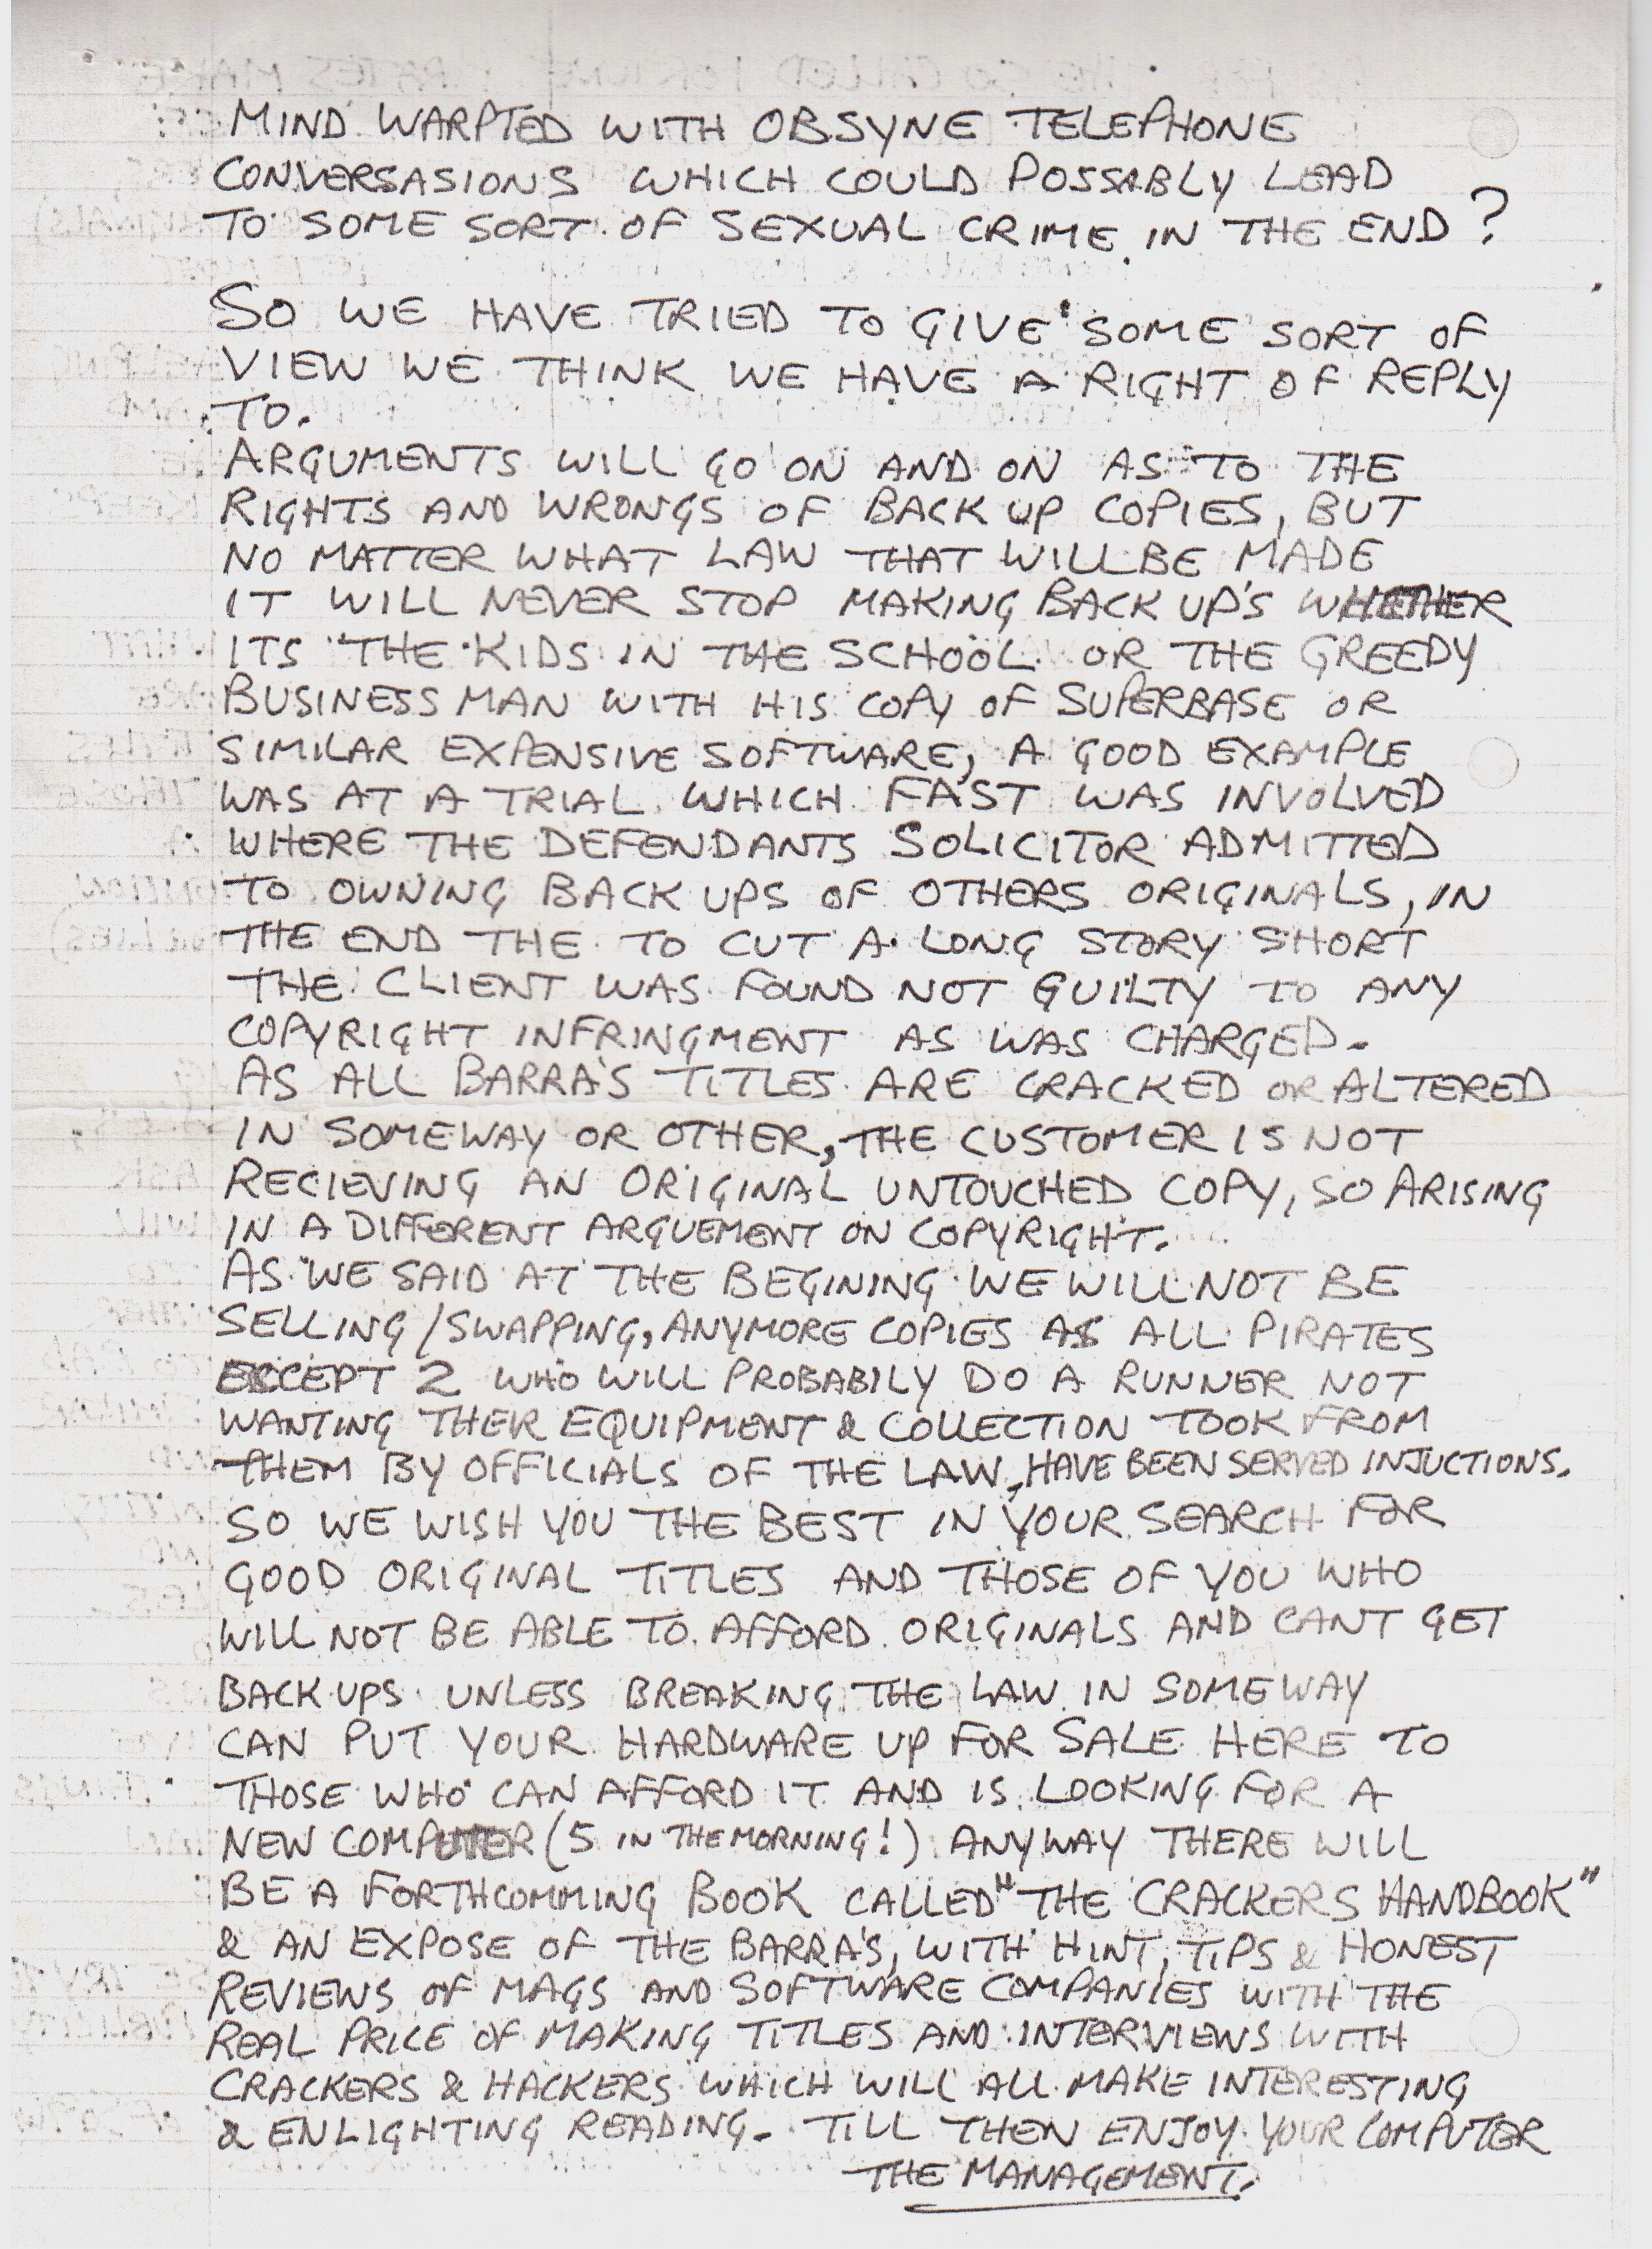 MIND WARPTED WITH OBSYNE TELEPHONE
CONVERSASIONS WHICH COULD POSSABLY LEAD
TO SOME SORT OF SEXUAL CRIME IN THE END?
SO WE HAVE TRIED TO GIVE SOME SORT OF
VIEW WE THINK WE HAVE A RIGHT OF REPLY
TO.
ARGUMENTS WILL GO ON AND ON AS TO THE
RIGHTS AND WRONGS OF BACK UP COPIES, BUT
NO MATTER WHAT LAW THAT WILL BE MADE
IT WILL NEVER STOP MAKING BACK UP'S WHETHER
ITS THE KIDS IN THE SCHOOL OR THE GREEDY
BUSINESS MAN WITH HIS COPY OF SUPERBASE OR
SIMILAR EXPENSIVE SOFTWARE, A GOOD EXAMPLE
WAS AT A TRIAL WHICH FAST WAS INVOLVED
WHERE THE DEFENDANTS SOLICITOR ADMITTED
TO OWNING BACK UPS OF OTHERS ORIGINALS, IN
THE END THE TO CUT A LONG STORY SHORT
THE CLIENT WAS FOUND NOT GUILTY TO ANY
COPYRIGHT INFRINGMENT AS WAS CHARGED.
AS ALL BARRA'S TITLES ARE CRACKED OR ALTERED
IN SOMEWAY OR OTHER, THE CUSTOMER IS NOT
RECIEVING AN ORIGINAL UNTOUCHED COPY, SO ARISING
IN A DIFFERENT ARGUEMENT ON COPYRIGHT.
AS WE SAID AT THE BEGINING WE WILL NOT BE
SELLING/SWAPPING, ANYMORE COPIES AS ALL PIRATES
EXCEPT 2 WHO WILL PROBABILY DO A RUNNER NOT
WANTING THER EQUIPMENT & COLLECTION TOOK FROM
THEM BY OFFICIALS OF THE LAW, HAVE BEEN SERVED INJUCTIONS.
SO WE WISH YOU THE BEST IN YOUR SEARCH FOR
GOOD ORIGINAL TITLES AND THOSE OF YOU WHO
WILL NOT BE ABLE TO AFFORD ORIGINALS AND CANT GET
BACK UPS UNLESS BREAKING THE LAW IN SOMEWAY
CAN PUT YOUR HARDWARE UP FOR SALE HERE TO
THOSE WHO CAN AFFORD IT AND IS LOOKING FOR A
NEW COMPUTER (5 IN THE MORNING!) ANYWAY THERE WILL
BE A FORTHCOMMING BOOK CALLED "THE CRACKERS HANDBOOK"
& AN EXPOSE OF THE BARRA'S, WITH HINT, TIPS & HONEST
REVIEWS OF MAGS AND SOFTWARE COMPANIES WITH THE
REAL PRICE OF MAKING TITLES AND INTERVIEWS WITH
CRACKERS & HACKERS WHICH WILL ALL MAKE INTERESTING
& ENLIGHTING READING. TILL THEN ENJOY YOUR COMPUTER
THE MANAGEMENT.